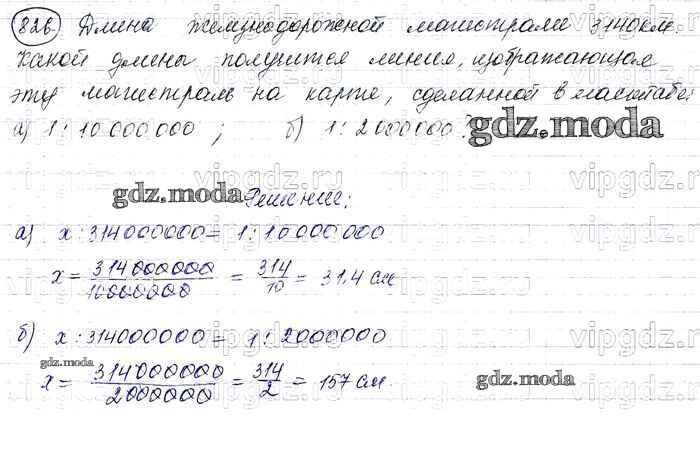 826. Длина железнодорожной магистрали 3140 км.
Какой длины получится линия, изображающая
эту магистраль на карте, сделанной в масштабе:
а) 1 : 10 000 000 ; б) 1 : 2000000 ?
gdz.moda
Решение:
gdz.moda
vipgdz.ru
а) x : 314 000000 = 1 : 10 000 000
x = 314 000000 / 10000000 = 314/10 = 31,4 см
б) x : 314000000 = 1 : 2000000
gdz.moda
x = 314000000 / 2000000 = 314/2 = 157 см
gdz.moda